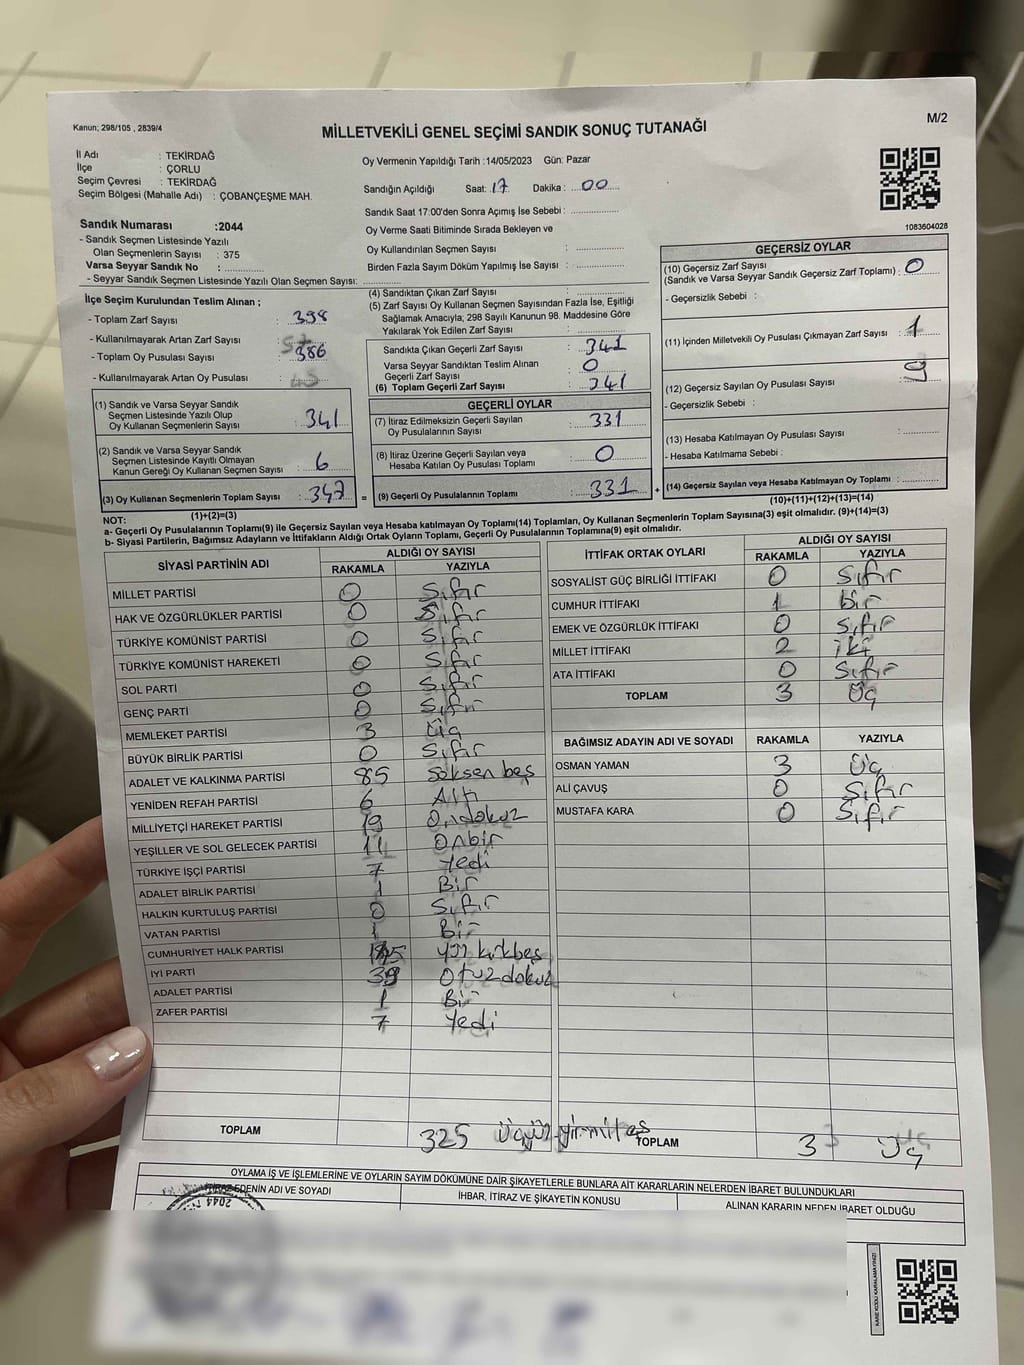 Kanun; 298/105 , 2839/4
M/2
MİLLETVEKİLİ GENEL SEÇİMİ SANDIK SONUÇ TUTANAĞI
İl Adı : TEKİRDAĞ
İlçe : ÇORLU
Seçim Çevresi : TEKİRDAĞ
Seçim Bölgesi (Mahalle Adı) : ÇOBANÇEŞME MAH.
Oy Vermenin Yapıldığı Tarih :14/05/2023 Gün: Pazar
Sandığın Açıldığı Saat: 17 Dakika : 00
Sandık Saat 17:00'den Sonra Açımış İse Sebebi :
Oy Verme Saati Bitiminde Sırada Bekleyen ve
Oy Kullandırılan Seçmen Sayısı :
Birden Fazla Sayım Döküm Yapılmış İse Sayısı :
1083604028
Sandık Numarası :2044
- Sandık Seçmen Listesinde Yazılı
Olan Seçmenlerin Sayısı : 375
Varsa Seyyar Sandık No :
- Seyyar Sandık Seçmen Listesinde Yazılı Olan Seçmen Sayısı:
İlçe Seçim Kurulundan Teslim Alınan ;
- Toplam Zarf Sayısı : 398
- Kullanılmayarak Artan Zarf Sayısı :
- Toplam Oy Pusulası Sayısı : 386
- Kullanılmayarak Artan Oy Pusulası :
(1) Sandık ve Varsa Seyyar Sandık
Seçmen Listesinde Yazılı Olup
Oy Kullanan Seçmenlerin Sayısı : 341
(2) Sandık ve Varsa Seyyar Sandık
Seçmen Listesinde Kayıtlı Olmayan
Kanun Gereği Oy Kullanan Seçmen Sayısı : 6
(3) Oy Kullanan Seçmenlerin Toplam Sayısı : 347 =
(1)+(2)=(3)
(4) Sandıktan Çıkan Zarf Sayısı :
(5) Zarf Sayısı Oy Kullanan Seçmen Sayısından Fazla İse, Eşitliği
Sağlamak Amacıyla; 298 Sayılı Kanunun 98. Maddesine Göre
Yakılarak Yok Edilen Zarf Sayısı :
Sandıkta Çıkan Geçerli Zarf Sayısı : 341
Varsa Seyyar Sandıktan Teslim Alınan
Geçerli Zarf Sayısı : 0
(6) Toplam Geçerli Zarf Sayısı : 341
GEÇERLİ OYLAR
(7) İtiraz Edilmeksizin Geçerli Sayılan
Oy Pusulalarının Sayısı : 331
(8) İtiraz Üzerine Geçerli Sayılan veya
Hesaba Katılan Oy Pusulası Toplamı : 0
(9) Geçerli Oy Pusulalarının Toplamı : 331 +
GEÇERSİZ OYLAR
(10) Geçersiz Zarf Sayısı
(Sandık ve Varsa Seyyar Sandık Geçersiz Zarf Toplamı) : 0
- Geçersizlik Sebebi :
(11) İçinden Milletvekili Oy Pusulası Çıkmayan Zarf Sayısı : 1
(12) Geçersiz Sayılan Oy Pusulası Sayısı : 9
- Geçersizlik Sebebi :
(13) Hesaba Katılmayan Oy Pusulası Sayısı :
- Hesaba Katılmama Sebebi :
(14) Geçersiz Sayılan veya Hesaba Katılmayan Oy Toplamı :
(10)+(11)+(12)+(13)=(14)
NOT:
a- Geçerli Oy Pusulalarının Toplamı(9) ile Geçersiz Sayılan veya Hesaba katılmayan Oy Toplamı(14) Toplamları, Oy Kullanan Seçmenlerin Toplam Sayısına(3) eşit olmalıdır. (9)+(14)=(3)
b- Siyasi Partilerin, Bağımsız Adayların ve İttifakların Aldığı Ortak Oyların Toplamı, Geçerli Oy Pusulalarının Toplamına(9) eşit olmalıdır.
SİYASİ PARTİNİN ADI ALDIĞI OY SAYISI
RAKAMLA YAZIYLA
MİLLET PARTİSİ 0 Sıfır
HAK VE ÖZGÜRLÜKLER PARTİSİ 0 Sıfır
TÜRKİYE KOMÜNİST PARTİSİ 0 Sıfır
TÜRKİYE KOMÜNİST HAREKETİ 0 Sıfır
SOL PARTİ 0 Sıfır
GENÇ PARTİ 0 Sıfır
MEMLEKET PARTİSİ 3 Üç
BÜYÜK BİRLİK PARTİSİ 0 Sıfır
ADALET VE KALKINMA PARTİSİ 85 Seksen beş
YENİDEN REFAH PARTİSİ 6 Altı
MİLLİYETÇİ HAREKET PARTİSİ 19 Ondokuz
YEŞİLLER VE SOL GELECEK PARTİSİ 11 Onbir
TÜRKİYE İŞÇİ PARTİSİ 7 Yedi
ADALET BİRLİK PARTİSİ 1 Bir
HALKIN KURTULUŞ PARTİSİ 0 Sıfır
VATAN PARTİSİ 1 Bir
CUMHURİYET HALK PARTİSİ 145 Yüz kırkbeş
İYİ PARTİ 39 Otuzdokuz
ADALET PARTİSİ 1 Bir
ZAFER PARTİSİ 7 Yedi
TOPLAM 325 Üçyüzyirmibeş
İTTİFAK ORTAK OYLARI ALDIĞI OY SAYISI
RAKAMLA YAZIYLA
SOSYALİST GÜÇ BİRLİĞİ İTTİFAKI 0 Sıfır
CUMHUR İTTİFAKI 1 bir
EMEK VE ÖZGÜRLÜK İTTİFAKI 0 Sıfır
MİLLET İTTİFAKI 2 iki
ATA İTTİFAKI 0 Sıfır
TOPLAM 3 Üç
BAĞIMSIZ ADAYIN ADI VE SOYADI RAKAMLA YAZIYLA
OSMAN YAMAN 3 Üç
ALİ ÇAVUŞ 0 Sıfır
MUSTAFA KARA 0 Sıfır
TOPLAM 3 Üç
OYLAMA İŞ VE İŞLEMLERİNE VE OYLARIN SAYIM DÖKÜMÜNE DAİR ŞİKAYETLERLE BUNLARA AİT KARARLARIN NELERDEN İBARET BULUNDUKLARI
İTİRAZ EDENİN ADI VE SOYADI İHBAR, İTİRAZ VE ŞİKAYETİN KONUSU ALINAN KARARIN NEDEN İBARET OLDUĞU
2044